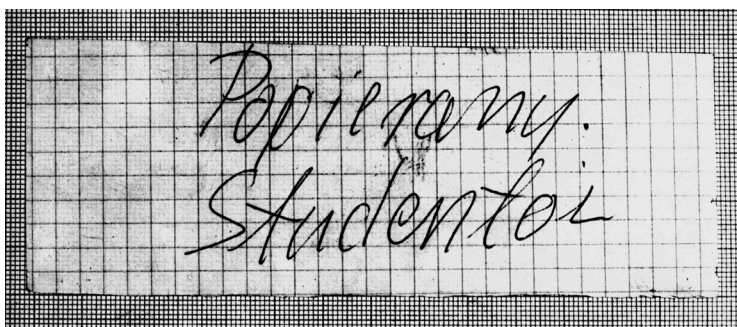 Popieramy.
Studentów